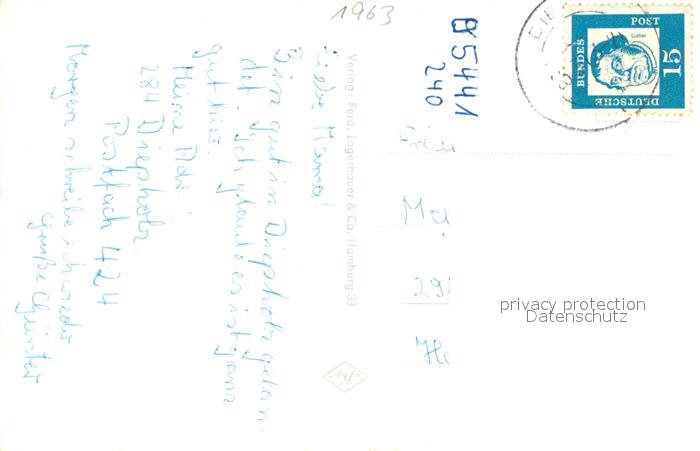 1963
B5441
240
Liebe Mama!
Bin gut in Diepholz gelan-
det. Ich glaube es ist ganz
gut hier.
Meine Adr.:
284 Diepholz
Postfach 424
Morgen schreibe ich wieder
Grüße Günter
Verlag: Ferd. Lagerbauer & Co. Hamburg 33
DEUTSCHE
BUNDES
POST
Luther
15
Mü
29
He
privacy protection
Datenschutz